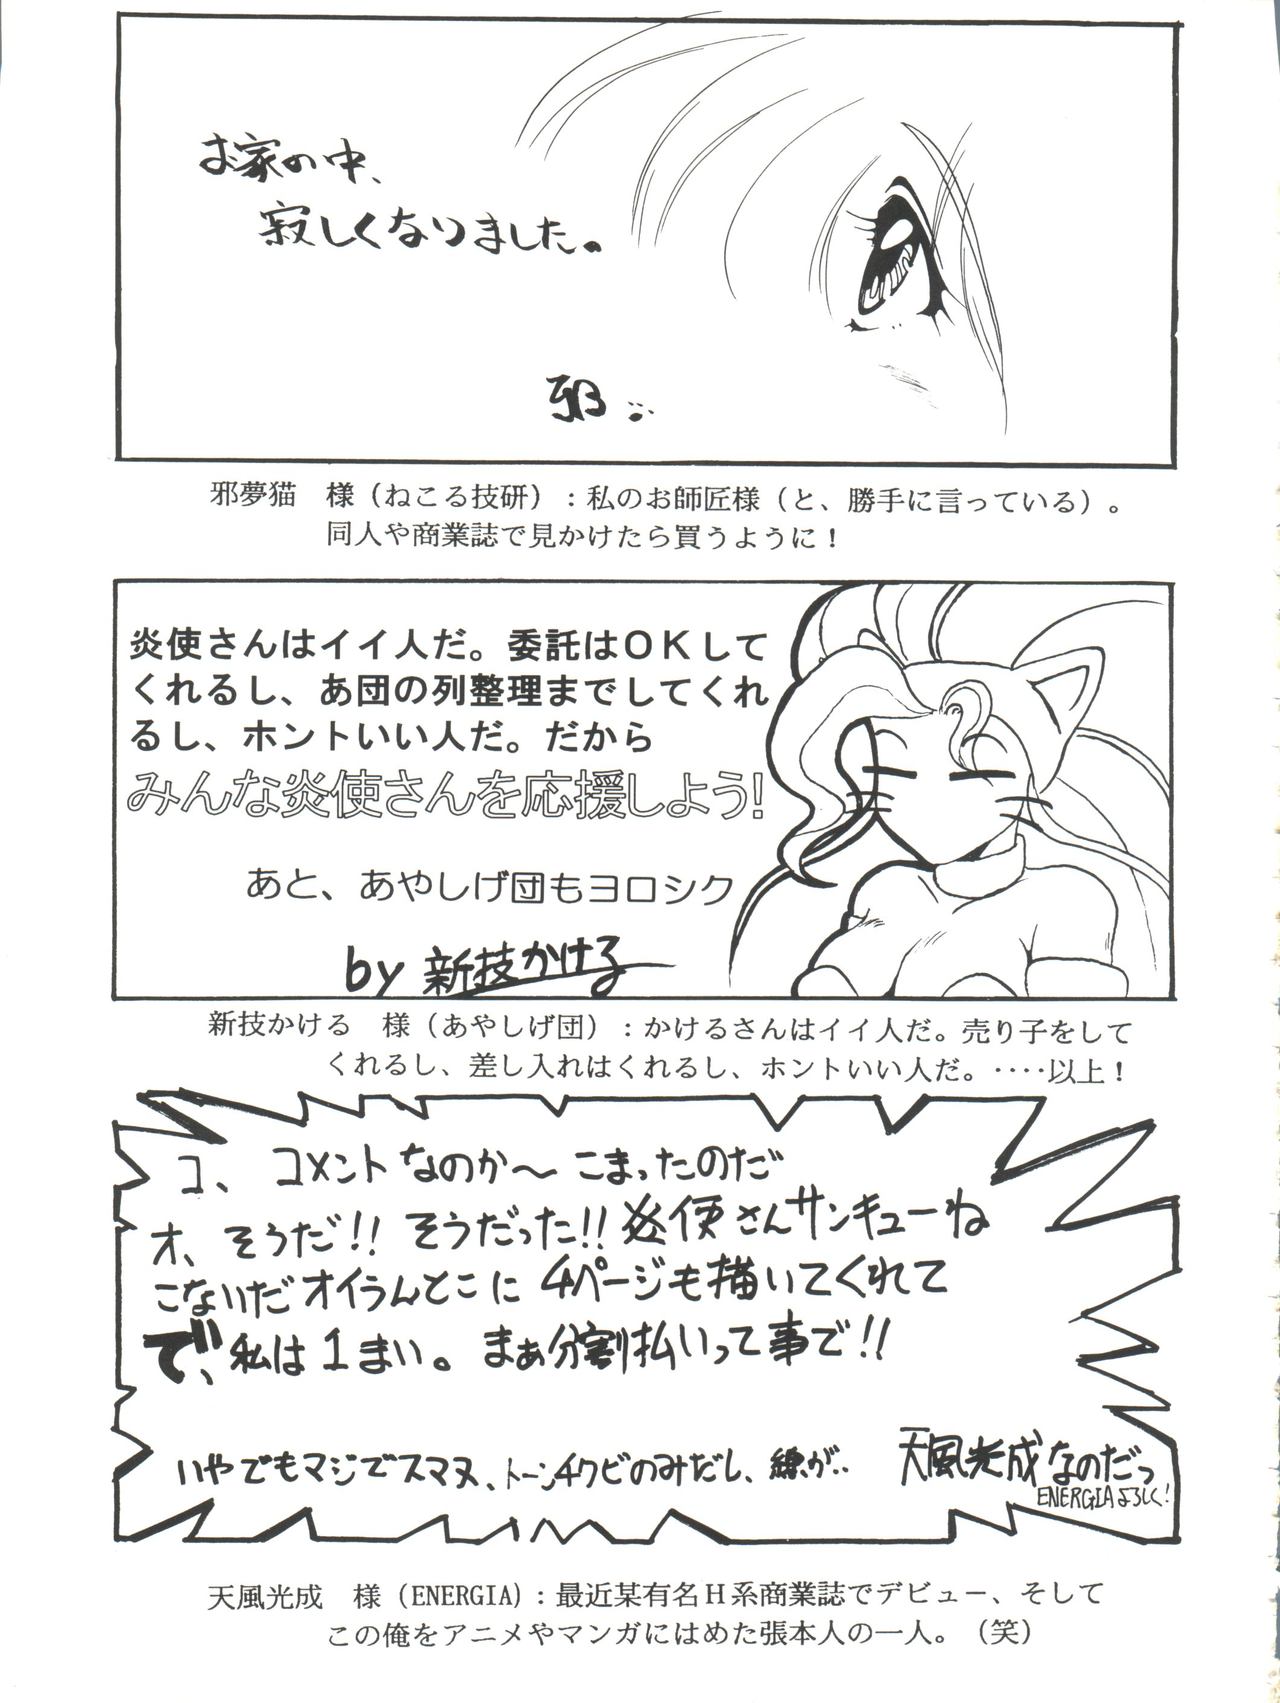 お家の中、
寂しくなりました。
邪
邪夢猫　様（ねこる技研）：私のお師匠様（と、勝手に言っている）。
同人や商業誌で見かけたら買うように！
炎使さんはイイ人だ。委託はＯＫして
くれるし、あ団の列整理までしてくれ
るし、ホントいい人だ。だから
みんな炎使さんを応援しよう！
あと、あやしげ団もヨロシク
by 新技かける
新技かける　様（あやしげ団）：かけるさんはイイ人だ。売り子をして
くれるし、差し入れはくれるし、ホントいい人だ。‥‥以上！
コ、コメントなのか～ こまったのだ
オ、そうだ!! そうだった!! 炎使さんサンキューね
こないだオイらんとこに 4ページも描いてくれて
で、私は1まい。まぁ分割払いって事で!!
いやでもマジでスマヌ、トーンチクビのみだし、線が‥
天風光成なのだっ
ENERGIAよろしく!
天風光成　様（ENERGIA）：最近某有名Ｈ系商業誌でデビュー、そして
この俺をアニメやマンガにはめた張本人の一人。（笑）